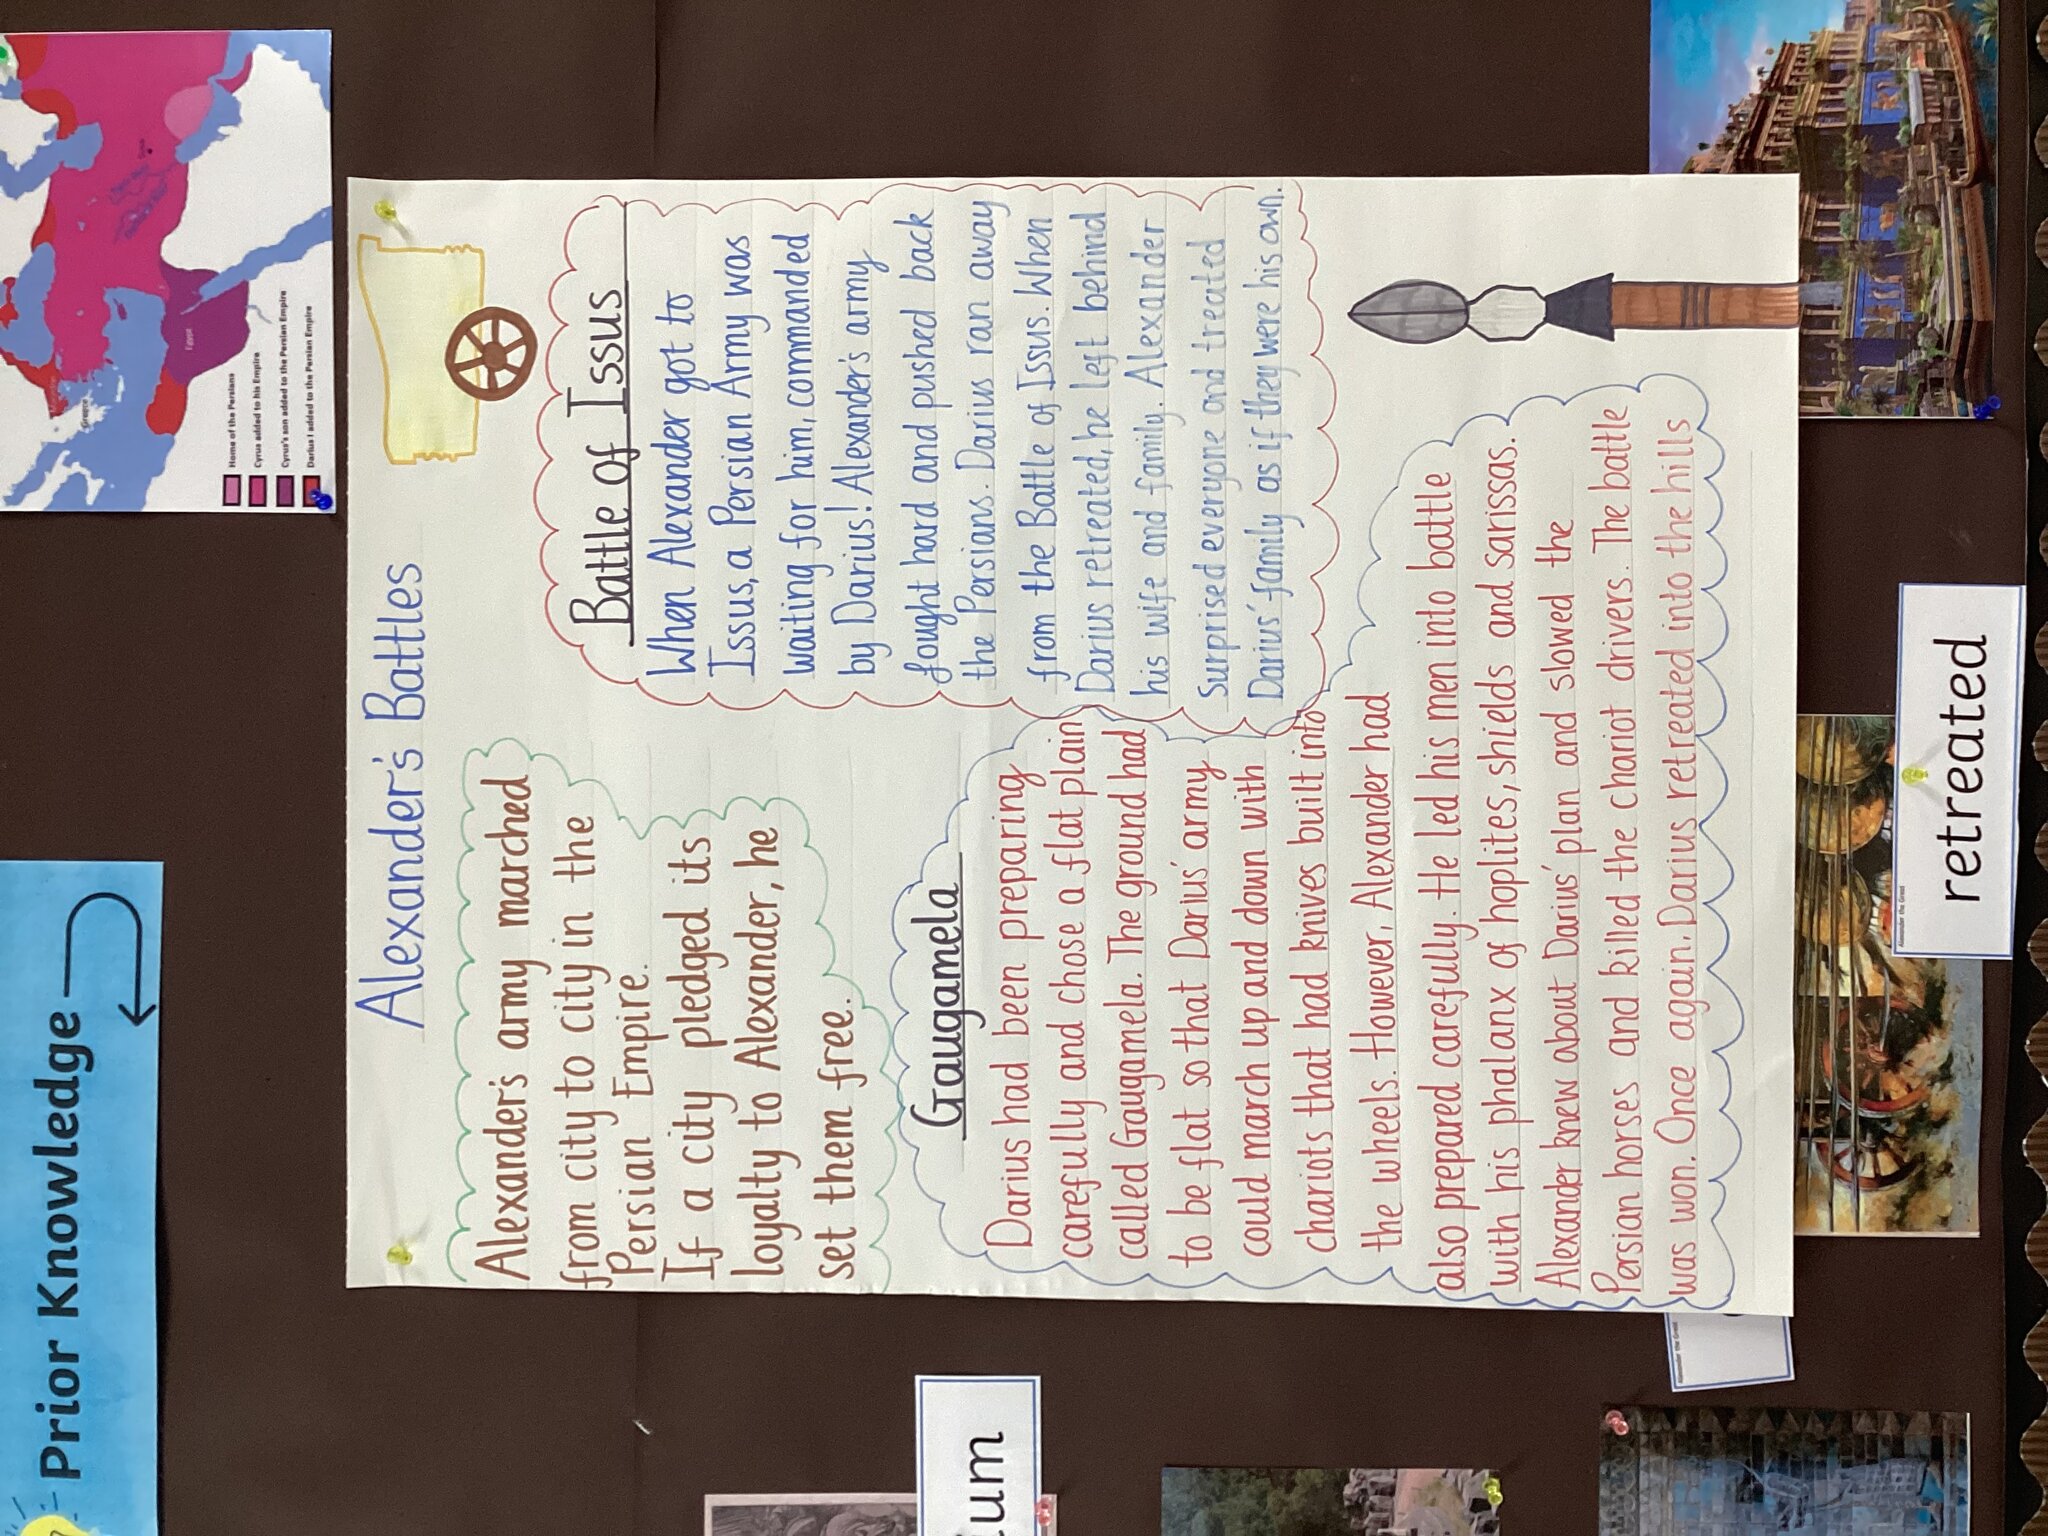 Prior Knowledge
Macedon
Greece
Egypt
Susa
Home of the Persians
Cyrus added to his Empire
Cyrus's son added to the Persian Empire
Darius I added to the Persian Empire
Alexander's Battles
Alexander's army marched
from city to city in the
Persian Empire.
If a city pledged its
loyalty to Alexander, he
set them free.
Battle of Issus
When Alexander got to
Issus, a Persian Army was
waiting for him, commanded
by Darius! Alexander's army
fought hard and pushed back
the Persians. Darius ran away
from the Battle of Issus. When
Darius retreated, he left behind
his wife and family. Alexander
surprised everyone and treated
Darius' family as if they were his own.
Gaugamela
Darius had been preparing
carefully and chose a flat plain
called Gaugamela. The ground had
to be flat so that Darius' army
could march up and down with
chariots that had knives built into
the wheels. However, Alexander had
also prepared carefully. He led his men into battle
with his phalanx of hoplites, shields and sarissas.
Alexander knew about Darius' plan and slowed the
Persian horses and killed the chariot drivers. The battle
was won. Once again, Darius retreated into the hills
ium
Alexander the Great
Alexander the Great
retreated